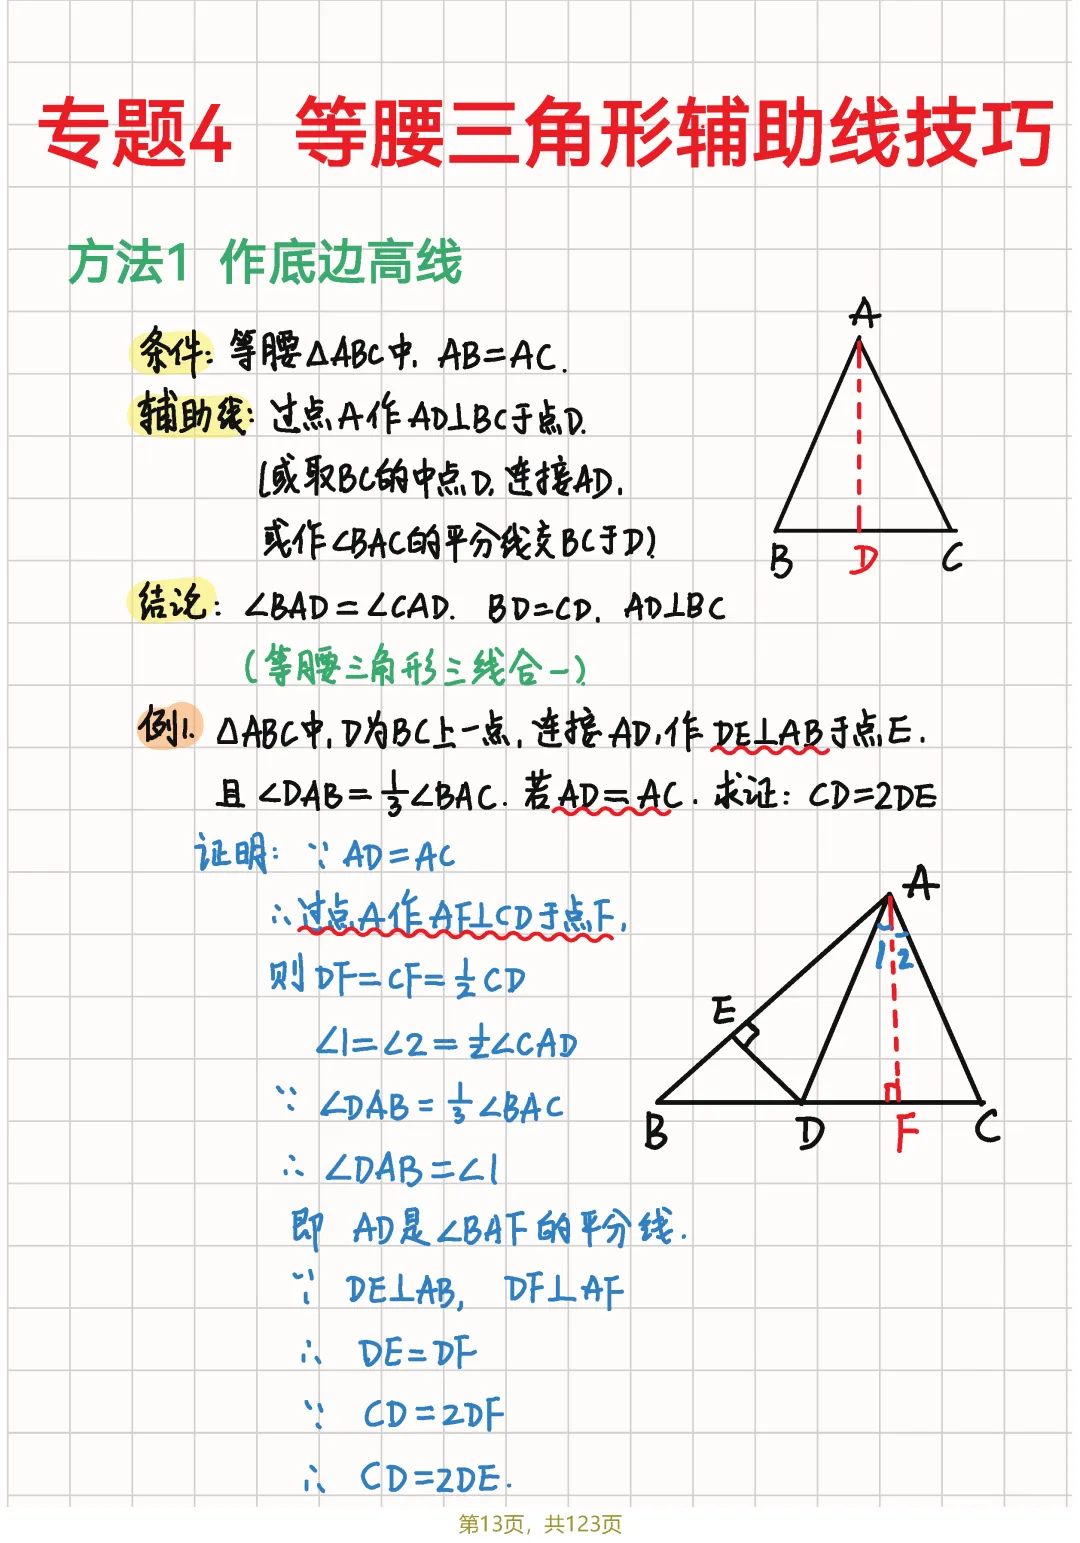 专题4 等腰三角形辅助线技巧
方法1 作底边高线
条件: 等腰△ABC中, AB=AC.
辅助线: 过点A作AD⊥BC于点D.
(或取BC的中点D, 连接AD,
或作∠BAC的平分线交BC于D)
结论: ∠BAD=∠CAD. BD=CD, AD⊥BC
(等腰三角形三线合一)
A
B D C
例1. △ABC中, D为BC上一点, 连接AD, 作DE⊥AB于点E.
且∠DAB=1/3∠BAC. 若AD=AC. 求证: CD=2DE
证明: ∵ AD=AC
∴过点A作AF⊥CD于点F,
则DF=CF=1/2CD
∠1=∠2=1/2∠CAD
∵ ∠DAB=1/3∠BAC
∴ ∠DAB=∠1
即 AD是∠BAF的平分线.
∵ DE⊥AB, DF⊥AF
∴ DE=DF
∵ CD=2DF
∴ CD=2DE.
A
1 2
E
B D F C
第13页，共123页